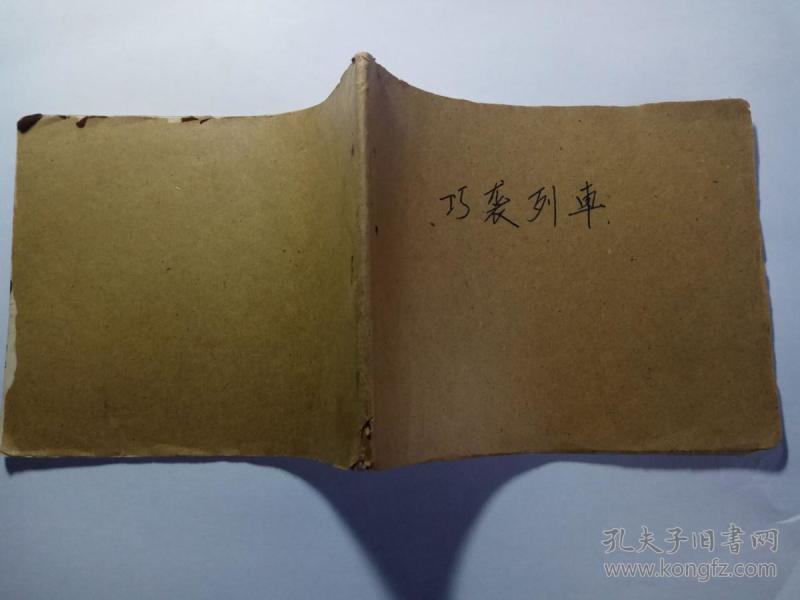 巧袭列車
孔夫子旧書网
www.kongfz.com